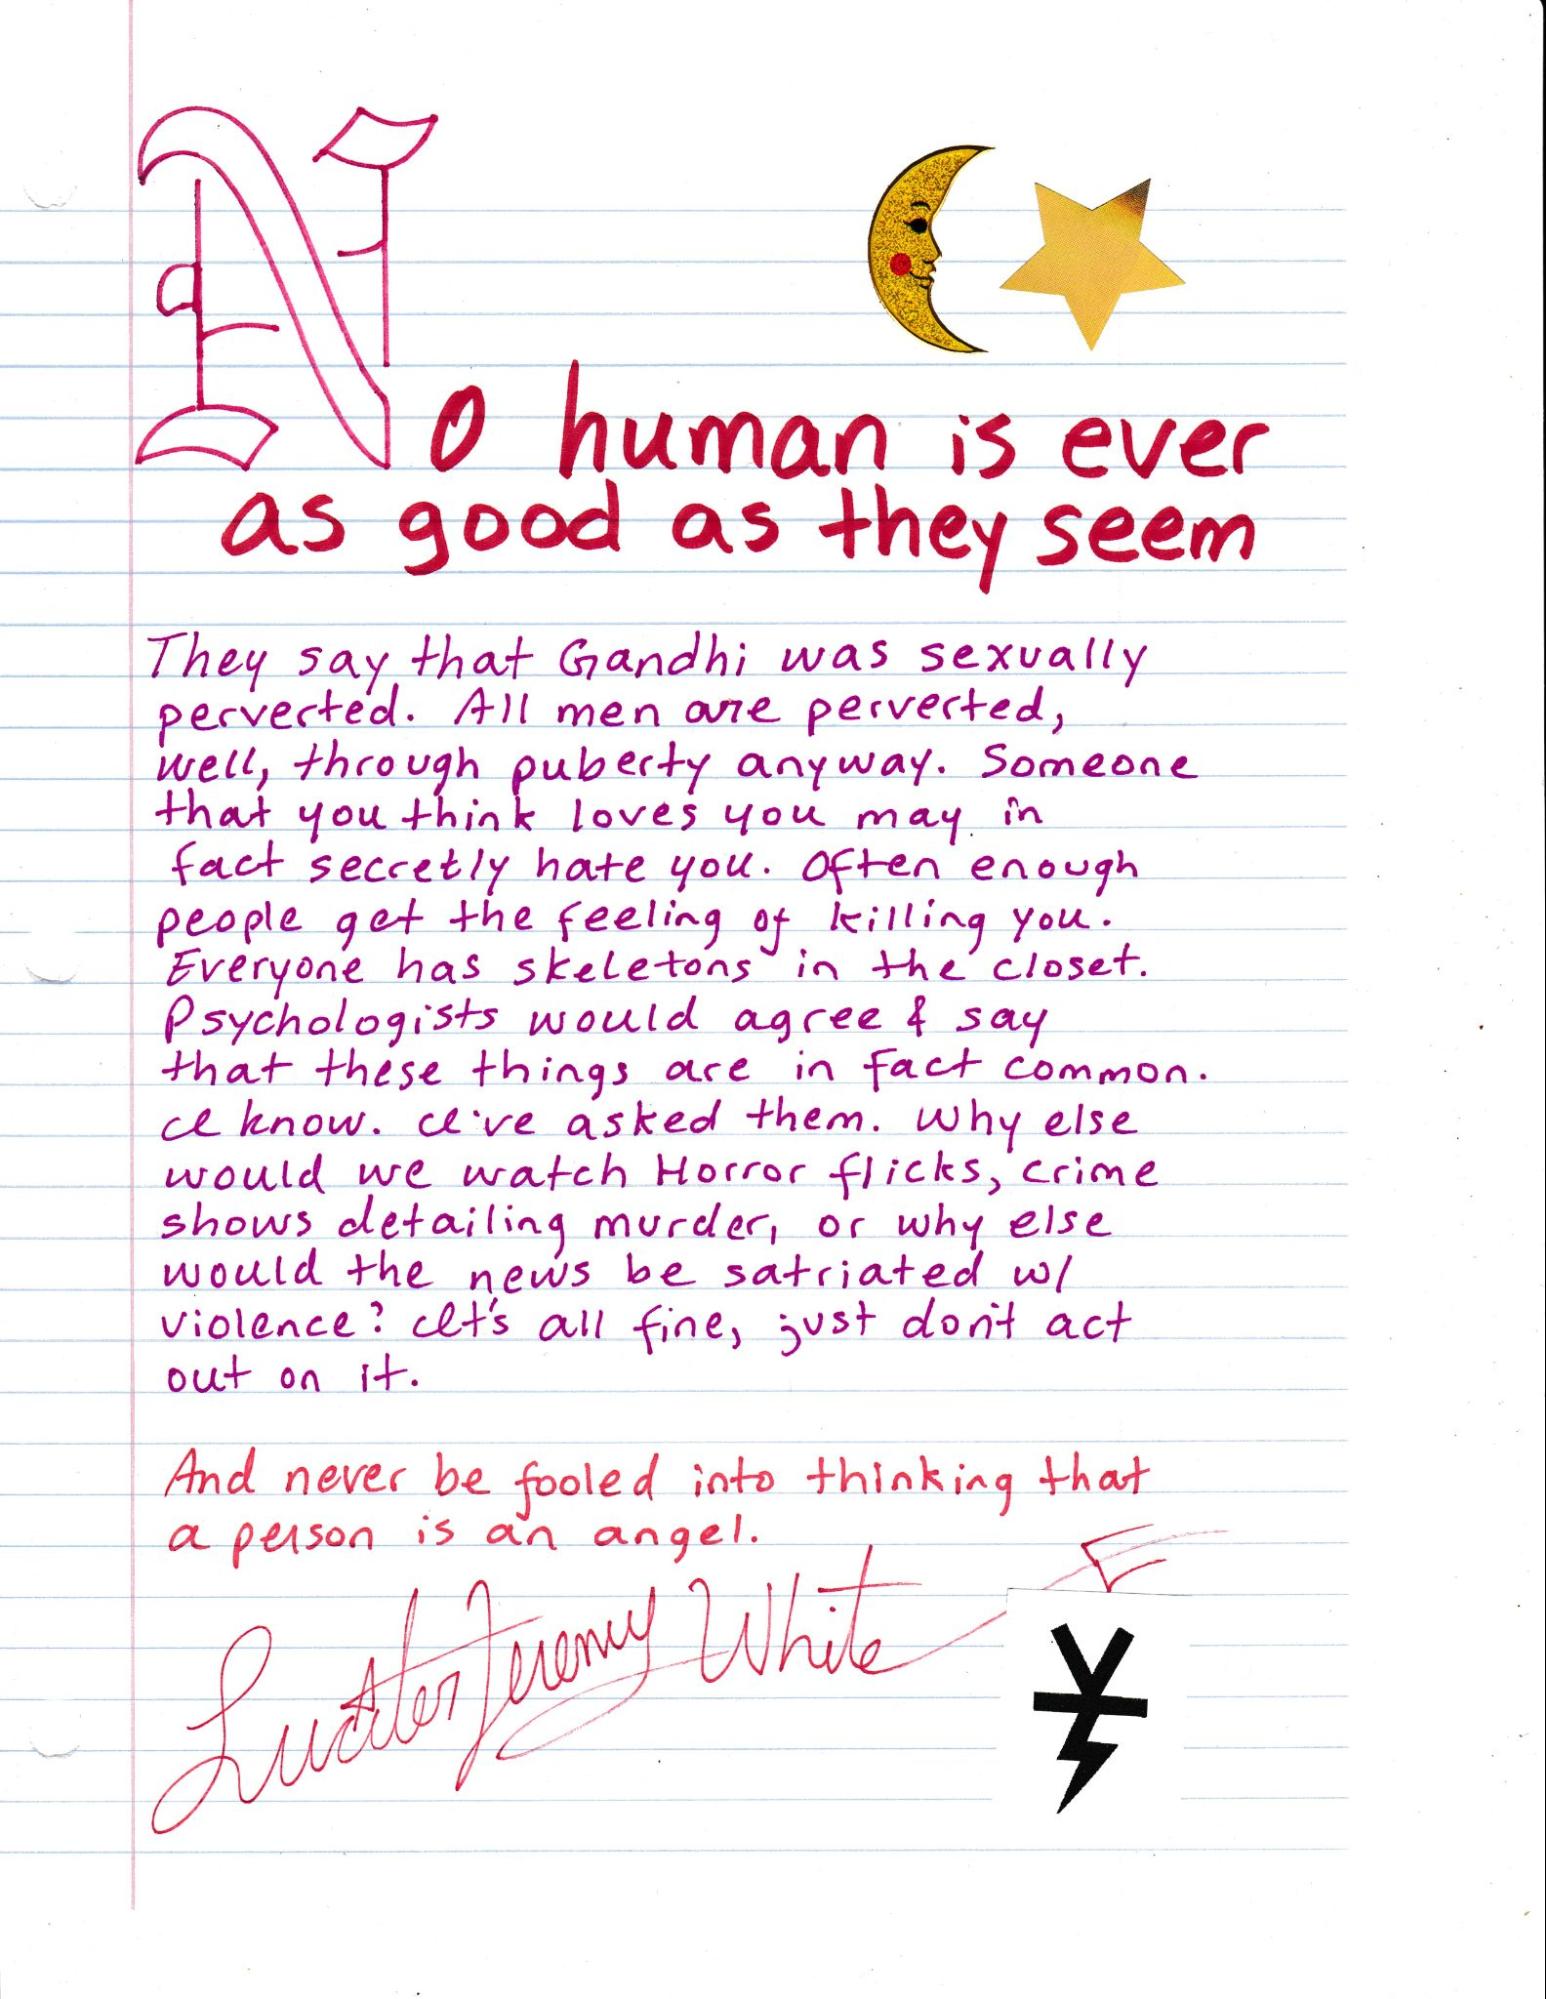 No human is ever
as good as they seem
They say that Gandhi was sexually
perverted. All men are perverted,
well, through puberty anyway. Someone
that you think loves you may in
fact secretly hate you. Often enough
people get the feeling of killing you.
Everyone has skeletons in the closet.
Psychologists would agree & say
that these things are in fact common.
I know. I've asked them. Why else
would we watch Horror flicks, crime
shows detailing murder, or why else
would the news be satriated w/
violence? It's all fine, just don't act
out on it.
And never be fooled into thinking that
a person is an angel.
Jeremy White